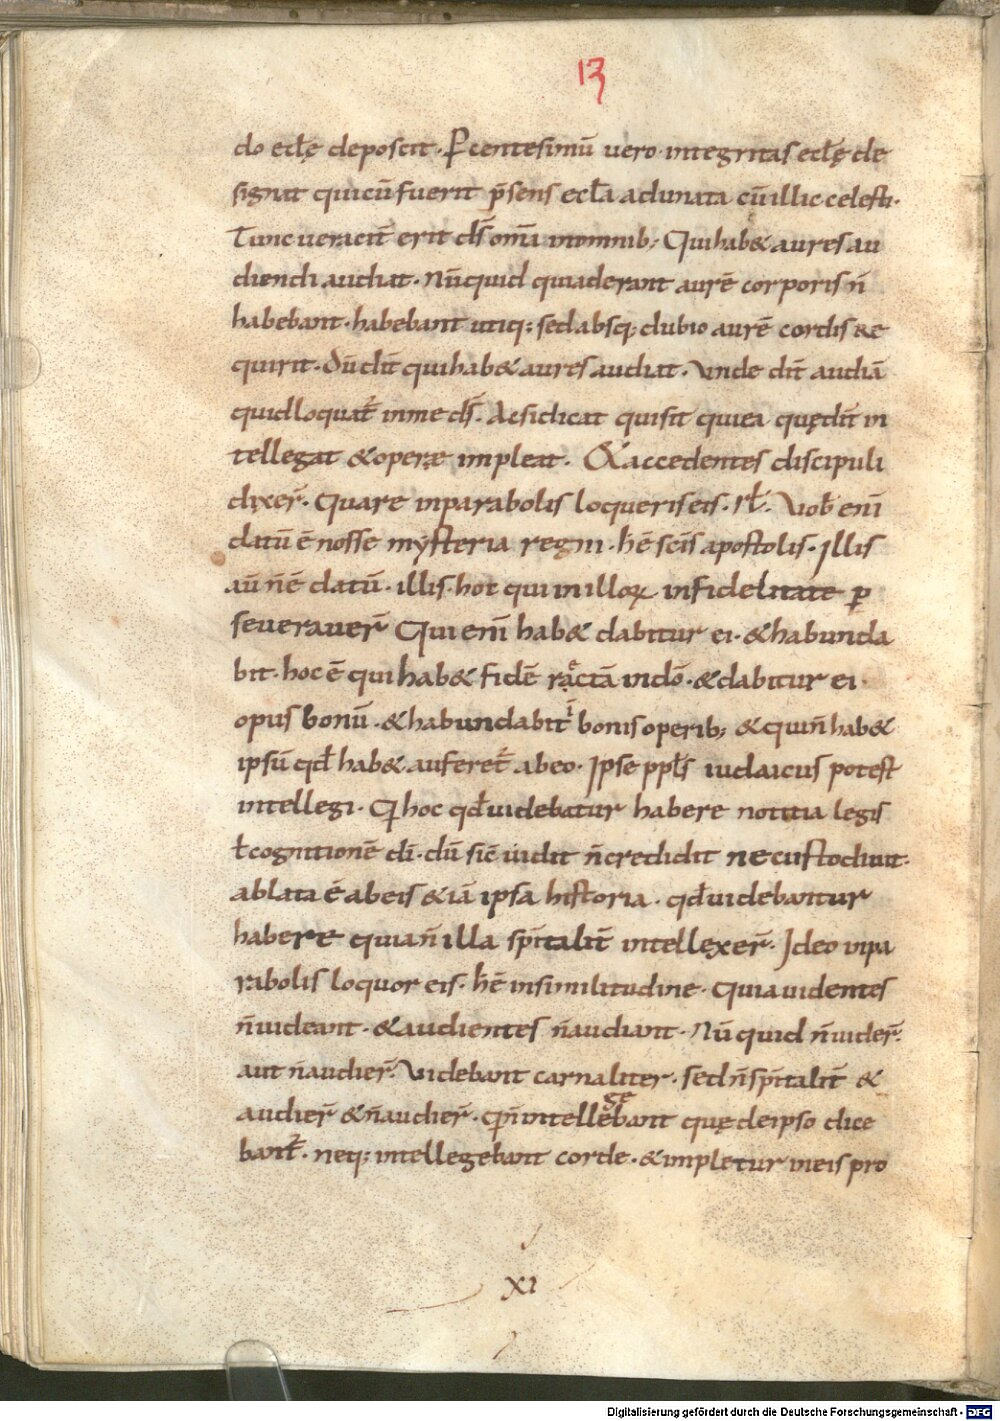 13
do ecłę deposcit · P centesimū uero · integritas ecłę de
signat quicū fuerit p̄sens ecłā adunata cū illic celesti ·
Tunc ueracit̄ erit ds̄ om̄a inomnib; Qui hab& aures au
diendi audiat · Nūquid quia deerant aurē corporis n̄
habebant · habebant utiq; sed absq; dubio aurē cordis re
quirit · Dū dic̄ qui hab& aures audiat · Vnde dic̄ audiā
quid loquat̄ in me ds̄ · Ac si dicat qui sit qui ea quę dic̄ in
tellegat & operę impleat · & accedentes discipuli
dixer̄ · Quare in parabolis loqueris eis · Vob̄ eni̅
datū ē nosse mẏsteria regni · h̄ē sc̄is apostolis · Illis
aū n̄ ē datū · illis · hoc qui in illorꝝ infidelitate p
seuerauer̄ Qui eni̅ hab& dabitur ei · & habunda
bit · hoc ē qui hab& fidē rectā in dō · & dabitur ei ·
opus bonū · & habundabit i bonis operib; & qui n̄ hab&
ipsū qđ hab& auferet̄ ab eo · Ipse ppłs iudaicus potest
intellegi · Q hoc qđ uidebatur habere notitia legis
ł cognitionē di̅ · dū sic̄ uidit n̄ credidit nec custodiuit ·
ablata ē ab eis & iā ipsa historia · qđ uidebantur
habere quia n̄ illa sp̄italit̄ intellexer̄ · Ideo in pa
rabolis loquor eis · h̄ē in similitudine · Quia uidentes
n̄ uideant · & audientes n̄ audiant · Nū quid n̄ uider̄ ·
aut n̄ audier̄ · Videbant carnaliter · sed n̄ sp̄italit̄ &
audier̄ & n̄ audier̄ · q n̄ intellegebant quę de ipso dice
bant̄ · neq; intellegebant corde · & impletur in eis pro
XI
Digitalisierung gefördert durch die Deutsche Forschungsgemeinschaft - DFG